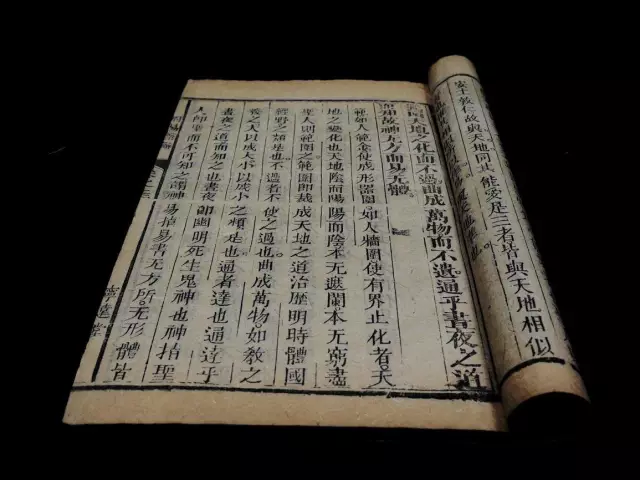 安土敦仁故與天地同其能愛是三者皆與天地相似
天地之化而不過曲成萬物而不遺通乎晝夜之道
而知故神无方而易无體
範如人範金使成形器圍如人牆圍使有界止化者天
地之變化也天地陰而陽陽而陰本无遮闌本无窮盡
聖人則範圍之範圍即裁成天地之道治歷明時體國
經野之類是也不過者不使之過也曲成萬物如教之
養之大以成大小以成小之類是也通者達也通達乎
晝夜之道而知之也晝夜即幽明死生鬼神也神指聖
人即聖而不可知之謂神易指易書无方所无形體皆
寧遠堂